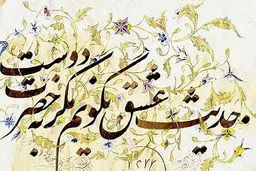 حدیث عشق نگویم مگر به حضرت دوست